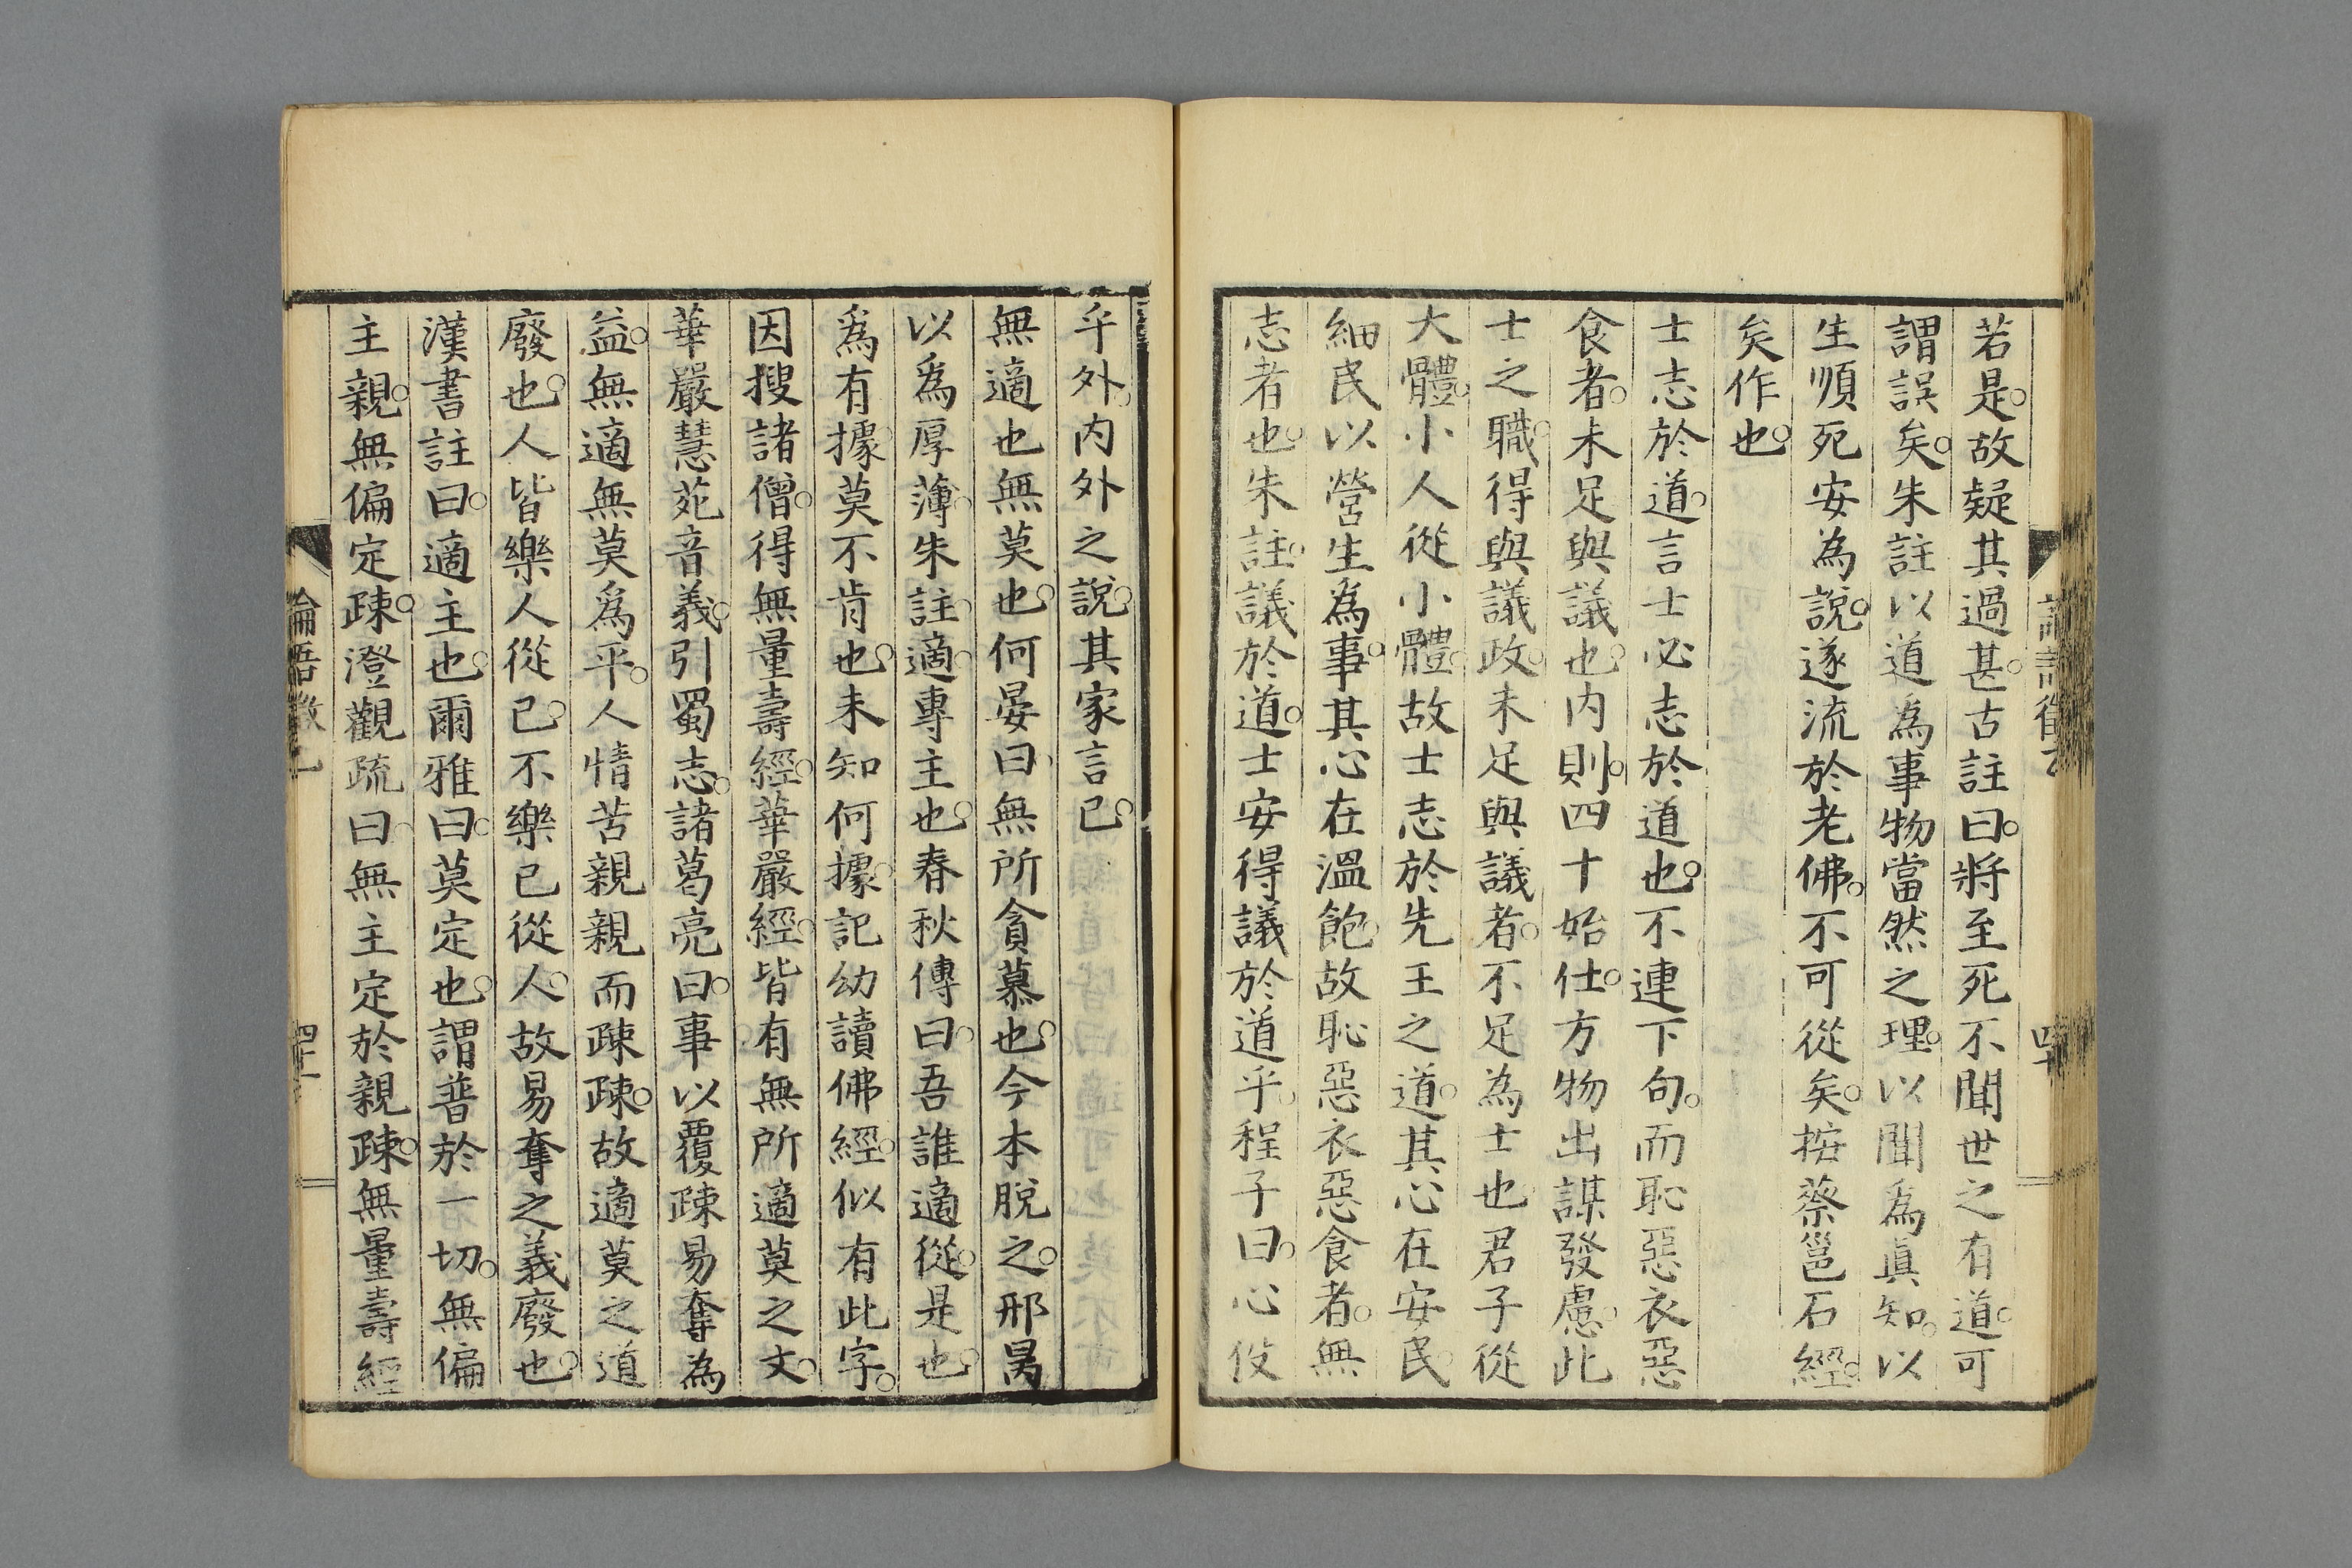 若是。故疑其過甚。古註曰。將至死不聞世之有道。可
謂誤矣。朱註以道為事物當然之理。以聞為眞知。以
生順死安為說。遂流於老佛。不可從矣。按蔡邕石經。
矣作也。
士志於道。言士必志於道也。不連下句。而恥惡衣惡
食者。未足與議也。內則。四十始仕。方物出謀發慮。此
士之職。得與議政。未足與議者。不足為士也。君子從
大體。小人從小體。故士志於先王之道。其心在安民。
細民以營生為事。其心在溫飽。故恥惡衣惡食者。無
志者也。朱註。議於道。士安得議於道乎。程子曰。心役
乎外。內外之說。其家言已。
無適也。無莫也。何晏曰。無所貪慕也。今本脫之。邢昺
以爲厚薄。朱註。適。專主也。春秋傳曰。吾誰適從。是也。
爲有據。莫。不肯也。未知何據。記幼讀佛經。似有此字。
因搜諸僧。得無量壽經。華嚴經。皆有無所適莫之文。
華嚴慧苑音義。引蜀志。諸葛亮曰。事以覆疎易奪為
益。無適無莫爲平。人情苦親親而疎疎。故適莫之道
廢也。人皆樂人從己。不樂己從人。故易奪之義廢也。
漢書註曰。適。主也。爾雅曰。莫。定也。謂普於一切。無偏
主親。無偏定疎。澄觀疏曰。無主定於親疎。無量壽經
論語徵乙
四十一